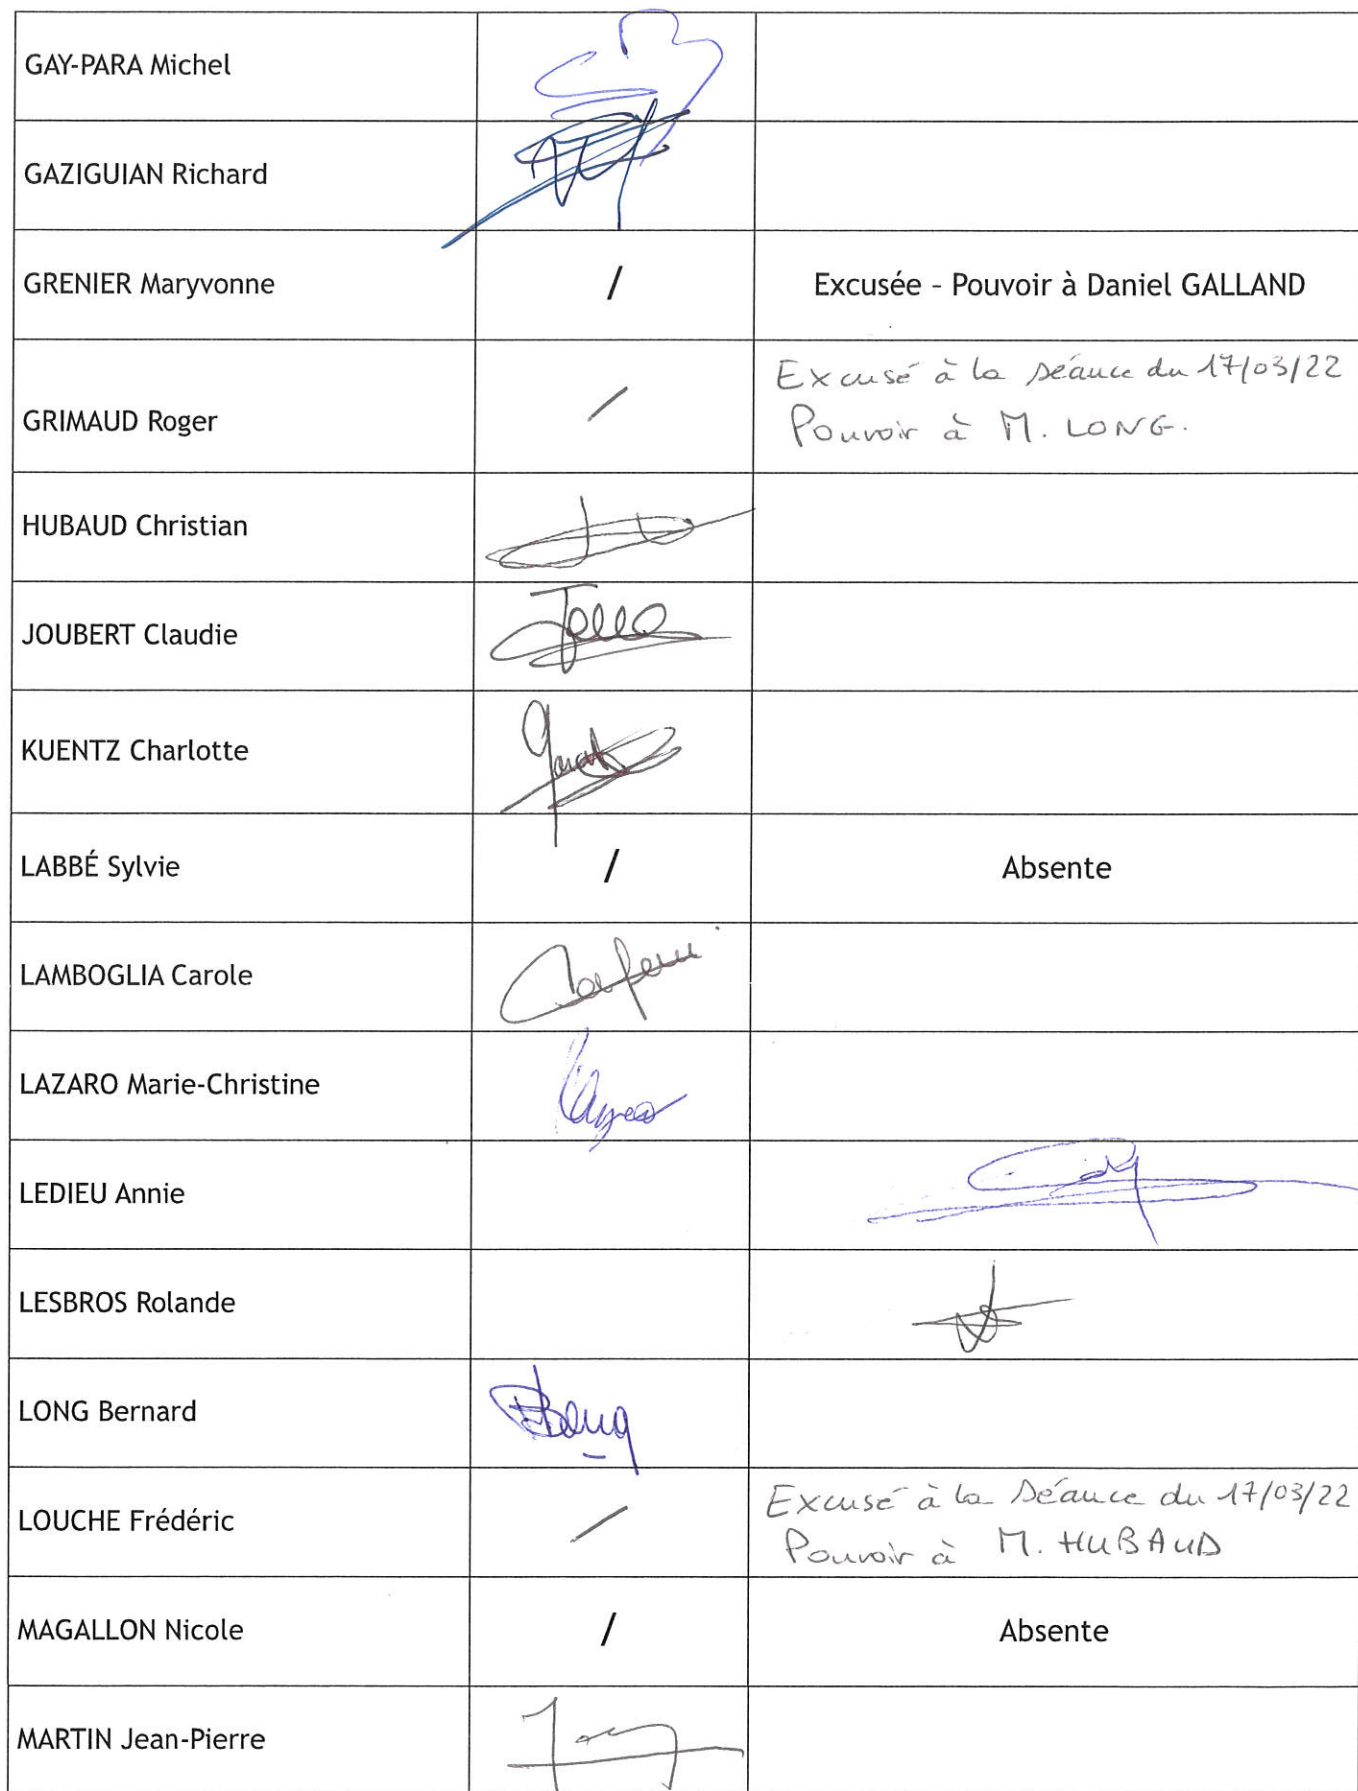 GAY-PARA Michel
GAZIGUIAN Richard
GRENIER Maryvonne / Excusée - Pouvoir à Daniel GALLAND
GRIMAUD Roger / Excusé à la séance du 17/03/22
Pouvoir à M. LONG.
HUBAUD Christian
JOUBERT Claudie
KUENTZ Charlotte
LABBÉ Sylvie / Absente
LAMBOGLIA Carole
LAZARO Marie-Christine
LEDIEU Annie
LESBROS Rolande
LONG Bernard
LOUCHE Frédéric / Excusé à la séance du 17/03/22
Pouvoir à M. HUBAUD
MAGALLON Nicole / Absente
MARTIN Jean-Pierre